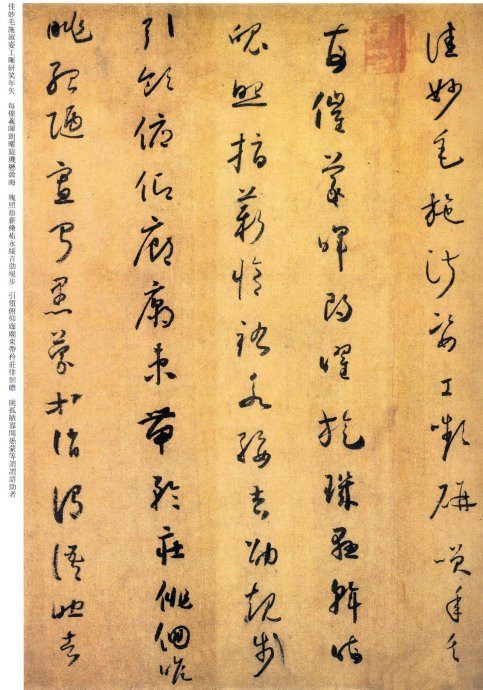 佳妙毛施淑姿工顰研笑年矢
每催羲暉朗曜旋璣懸斡晦
魄照指薪脩祐永綏吉劭規步
引領俯仰廊廟束帶矜莊徘徊瞻
眺孤陋寡聞愚蒙等誚謂語助者
佳妙毛施淑姿工顰研笑年矢　每催羲暉朗曜旋璣懸斡晦　魄照指薪脩祐永綏吉劭規步　引領俯仰廊廟束帶矜莊徘徊瞻　眺孤陋寡聞愚蒙等誚謂語助者